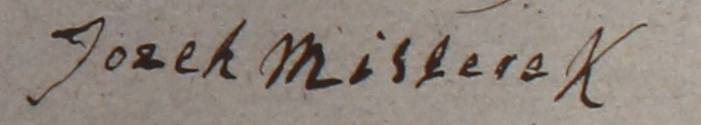 Jozek Misterek